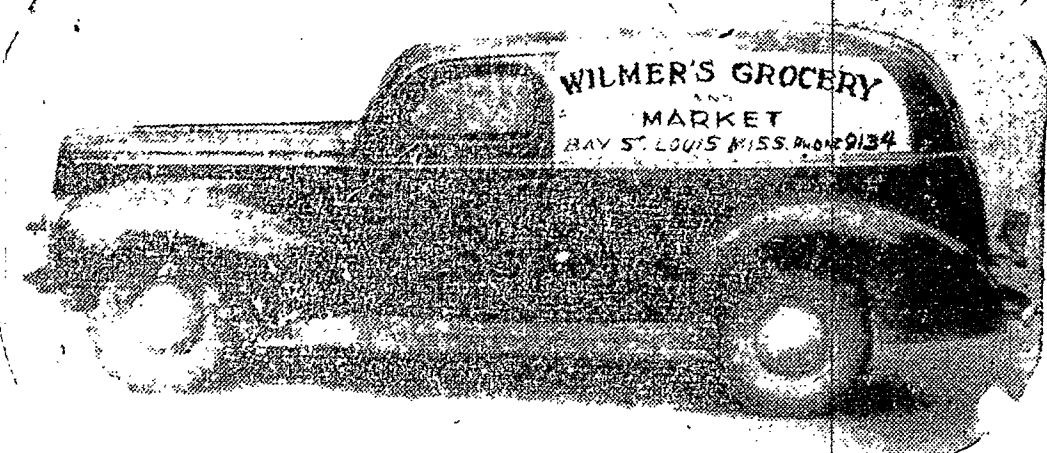 WILMER'S GROCERY
AND
MARKET
BAY ST. LOUIS MISS. PHONE 9134